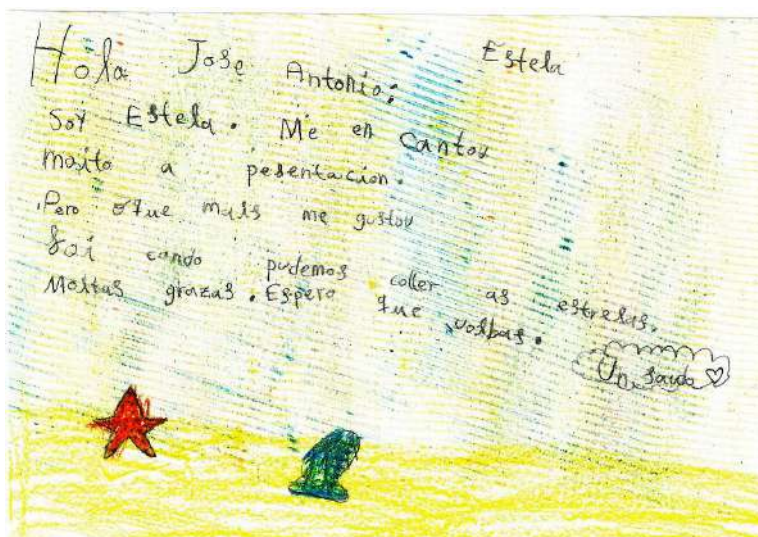 Estela
Hola Jose Antonio:
Soy Estela. Me en cantou
moito a pesentacion.
Pero o que mais me gustou
foi cando pudemos coller as estrelas.
Moitas grazas. Espero que volbas.
Un saudo